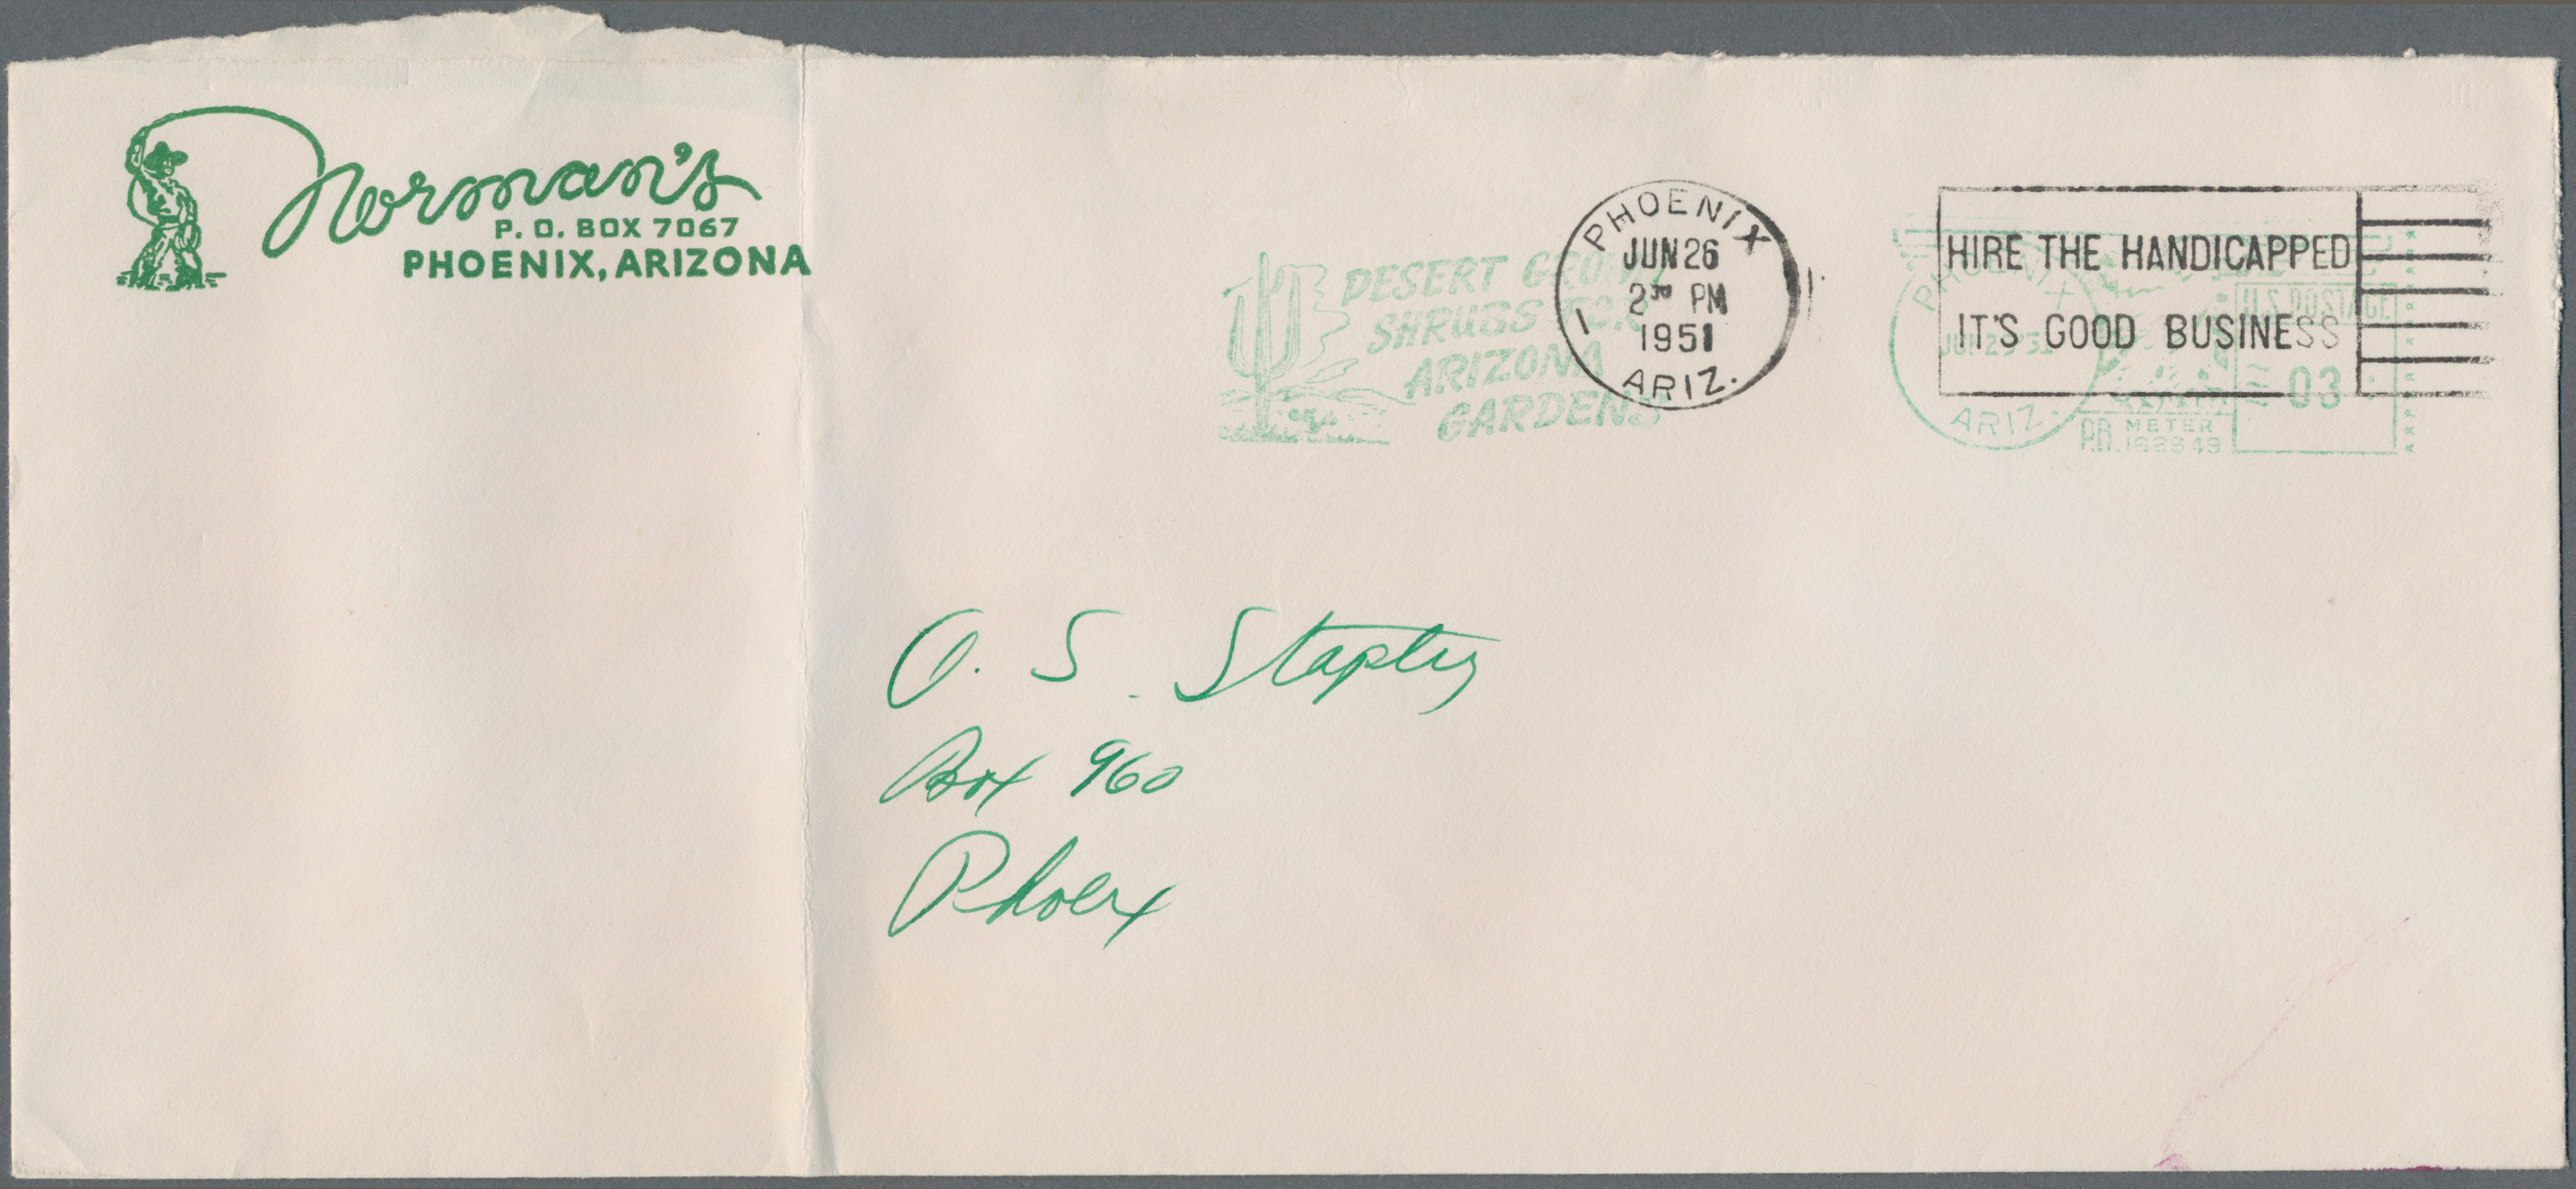 Norman's
P. O. BOX 7067
PHOENIX, ARIZONA
DESERT GROWN
SHRUBS FOR
ARIZONA
GARDENS
PHOENIX
JUN 26
2 30 PM
1951
1
ARIZ.
HIRE THE HANDICAPPED
IT'S GOOD BUSINESS
PHOENIX
ARIZ.
U.S. POSTAGE
03
P.B. METER
O. S. Stapley
Box 960
Phoenx